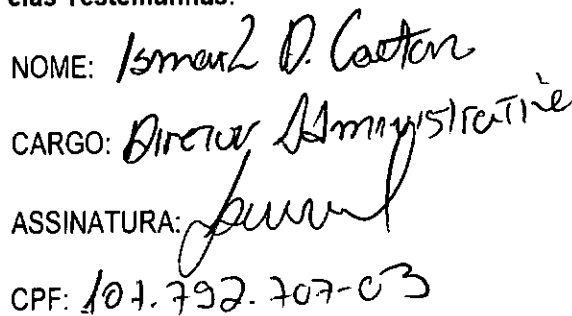 elas Testemunhas:
NOME: Ismael D. Caetan
CARGO: Diretor Administrative
ASSINATURA:
CPF: 107.792.707-03